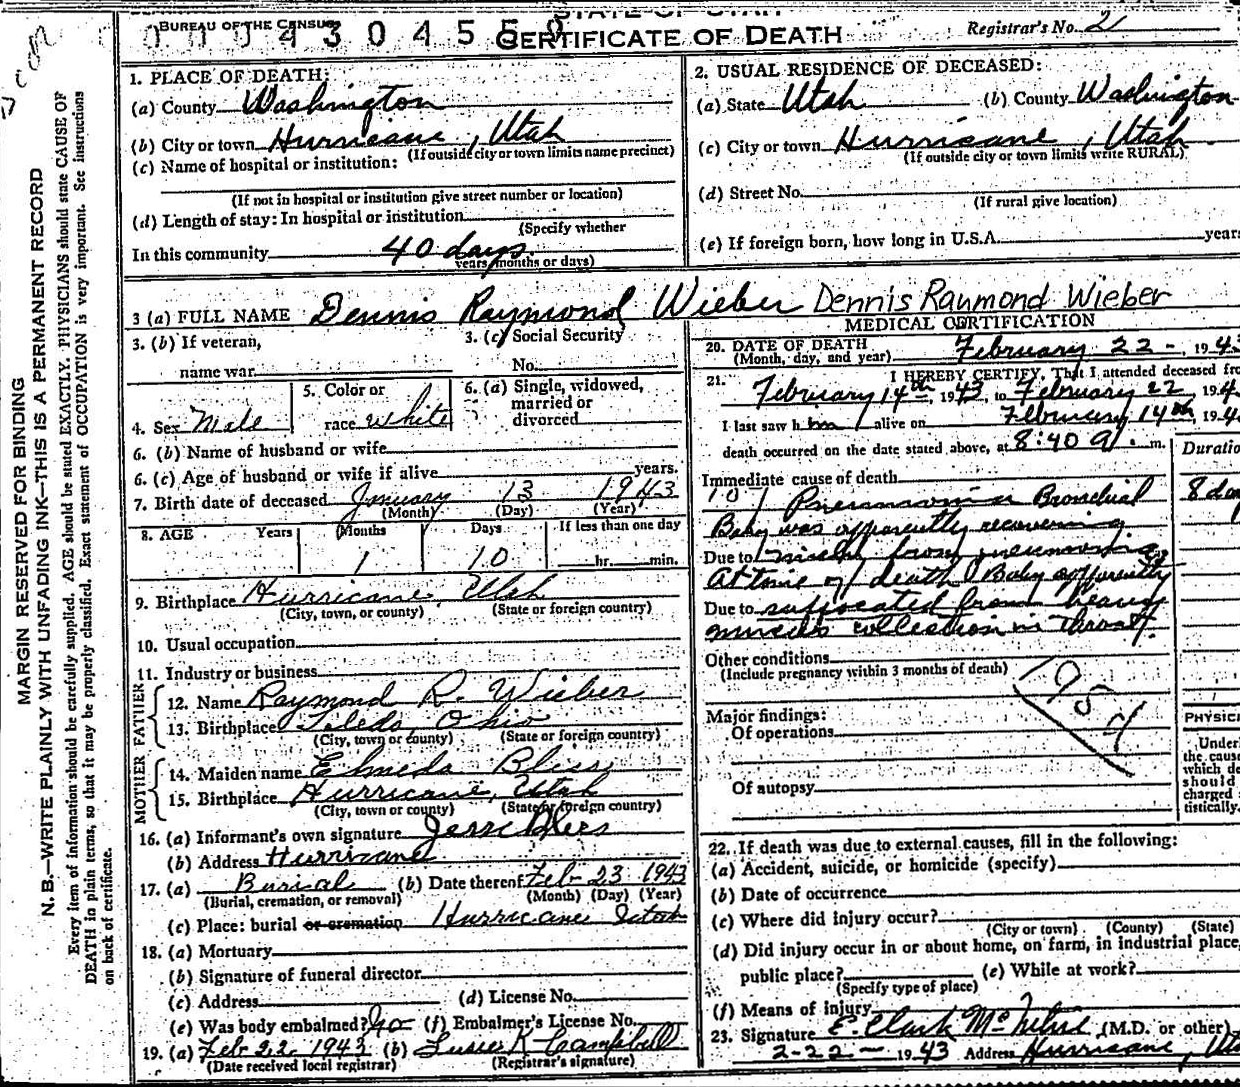 STATE OF UTAH
BUREAU OF THE CENSUS
430455
CERTIFICATE OF DEATH
Registrar's No. 21
MARGIN RESERVED FOR BINDING
N. B.—WRITE PLAINLY WITH UNFADING INK—THIS IS A PERMANENT RECORD
Every item of information should be carefully supplied. AGE should be stated EXACTLY. PHYSICIANS should state CAUSE OF
DEATH in plain terms, so that it may be properly classified. Exact statement of OCCUPATION is very important. See instructions
on back of certificate.
1. PLACE OF DEATH:
(a) County Washington
(b) City or town Hurricane, Utah
(If outside city or town limits name precinct)
(c) Name of hospital or institution:
(If not in hospital or institution give street number or location)
(d) Length of stay: In hospital or institution
(Specify whether
In this community 40 days
years, months or days)
2. USUAL RESIDENCE OF DECEASED:
(a) State Utah (b) County Washington
(c) City or town Hurricane, Utah
(If outside city or town limits write RURAL)
(d) Street No.
(If rural give location)
(e) If foreign born, how long in U.S.A. years
3 (a) FULL NAME Dennis Raymond Wieber Dennis Raymond Wieber
3. (b) If veteran,
name war
3. (c) Social Security
No.
4. Sex Male
5. Color or
race White
6. (a) Single, widowed,
married or
divorced
6. (b) Name of husband or wife
6. (c) Age of husband or wife if alive years.
7. Birth date of deceased January 13 1943
(Month) (Day) (Year)
8. AGE Years Months Days If less than one day
1 10 hr. min.
9. Birthplace Hurricane Utah
(City, town, or county) (State or foreign country)
10. Usual occupation
11. Industry or business
FATHER
12. Name Raymond R. Wieber
13. Birthplace Toledo, Ohio
(City, town or county) (State or foreign country)
MOTHER
14. Maiden name Elmeda
15. Birthplace Hurricane, Utah
(City, town or county) (State or foreign country)
16. (a) Informant's own signature Jesse
(b) Address Hurricane
17. (a) Burial (b) Date thereof Feb 23 1943
(Burial, cremation, or removal) (Month) (Day) (Year)
(c) Place: burial or cremation Hurricane Utah
18. (a) Mortuary
(b) Signature of funeral director
(c) Address (d) License No.
(e) Was body embalmed? No (f) Embalmer's License No.
19. (a) Feb 22 1943 (b) Campbell
(Date received local registrar) (Registrar's signature)
MEDICAL CERTIFICATION
20. DATE OF DEATH
(Month, day, and year) February 22 -, 1943
21. I HEREBY CERTIFY, That I attended deceased fro
February 14th, 1943, to February 22, 194
I last saw him alive on February 14th, 194
death occurred on the date stated above, at 8:40 a. m.
Duratio
Immediate cause of death
107 Pneumonia Bronchial 8 da
Baby was apparently recovering
Due to nicely from pneumonia
At time of death Baby apparently
Due to suffocated from heavy
mucus collection in throat.
Other conditions
(Include pregnancy within 3 months of death)
Major findings:
Of operations
Of autopsy
PHYSICI
Under
the cause
which de
should
charged s
tistically.
22. If death was due to external causes, fill in the following:
(a) Accident, suicide, or homicide (specify)
(b) Date of occurrence
(c) Where did injury occur?
(City or town) (County) (State)
(d) Did injury occur in or about home, on farm, in industrial place,
public place? (e) While at work?
(Specify type of place)
(f) Means of injury
23. Signature E. Clark McIntire (M.D. or other)
2-22- 1943 Address Hurricane, Uta